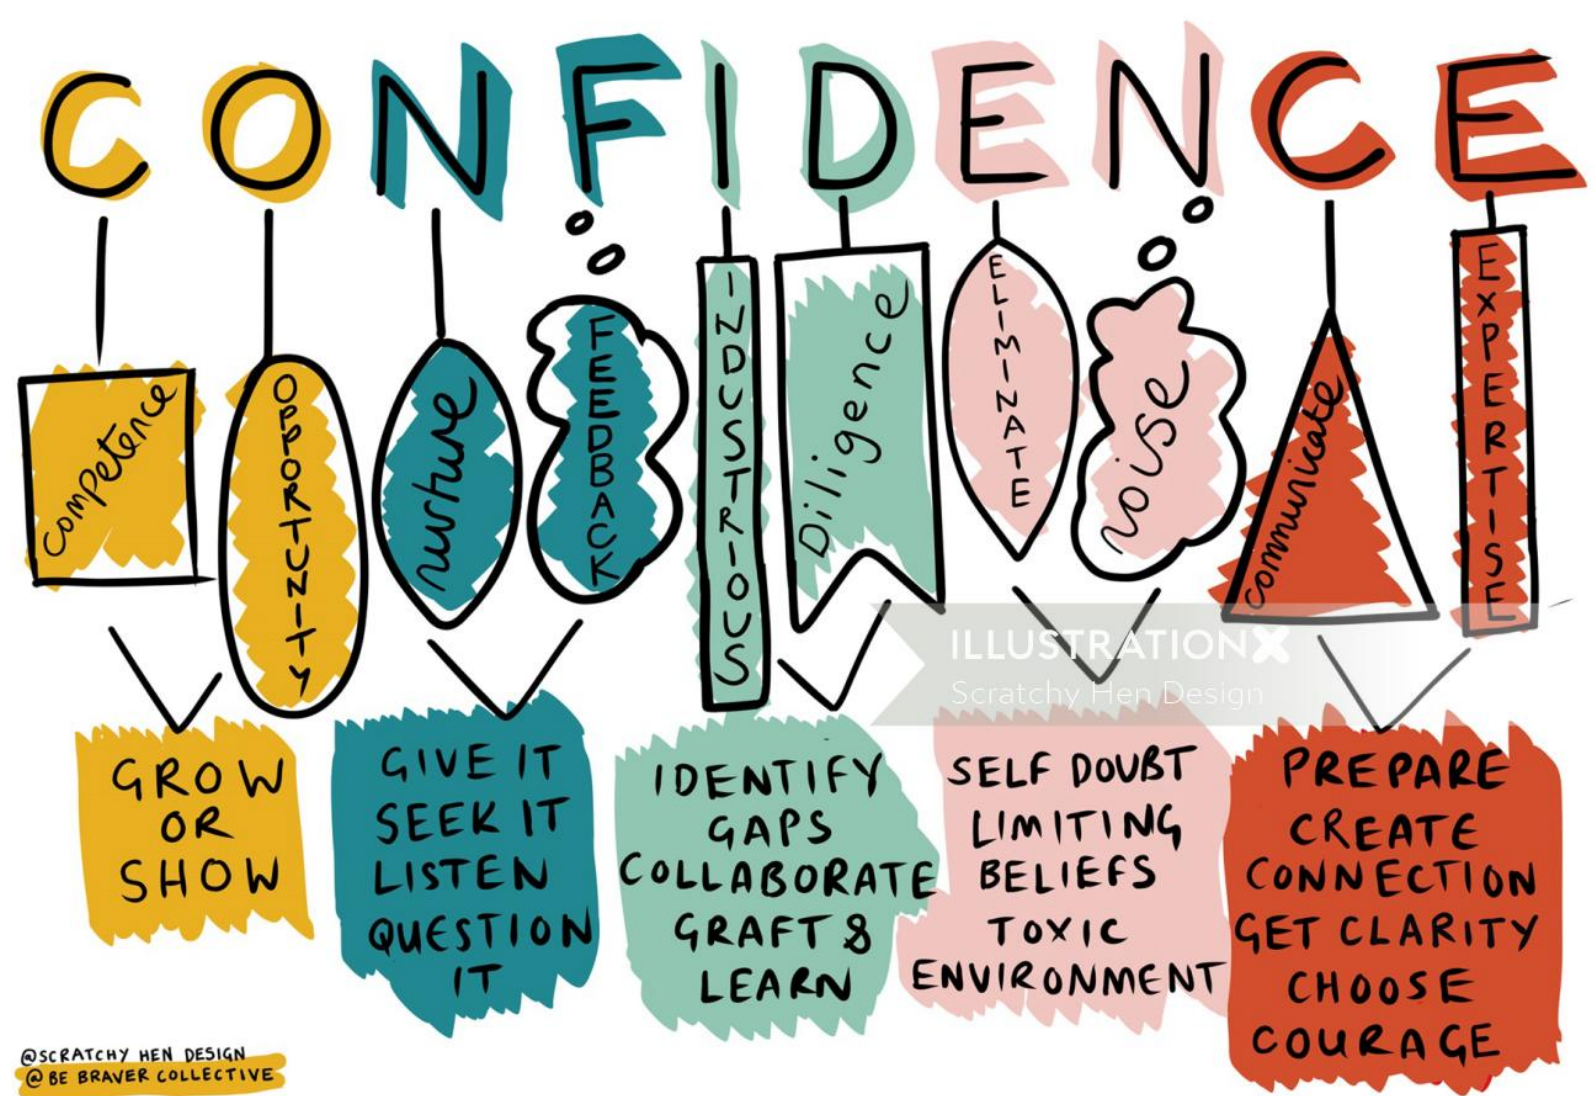 CONFIDENCE
competence
OPPORTUNITY
nurture
FEEDBACK
INDUSTRIOUS
Diligence
ELIMINATE
noise
communicate
EXPERTISE
ILLUSTRATIONX
Scratchy Hen Design
GROW
OR
SHOW
GIVE IT
SEEK IT
LISTEN
QUESTION
IT
IDENTIFY
GAPS
COLLABORATE
GRAFT &
LEARN
SELF DOUBT
LIMITING
BELIEFS
TOXIC
ENVIRONMENT
PREPARE
CREATE
CONNECTION
GET CLARITY
CHOOSE
COURAGE
@SCRATCHY HEN DESIGN
@ BE BRAVER COLLECTIVE